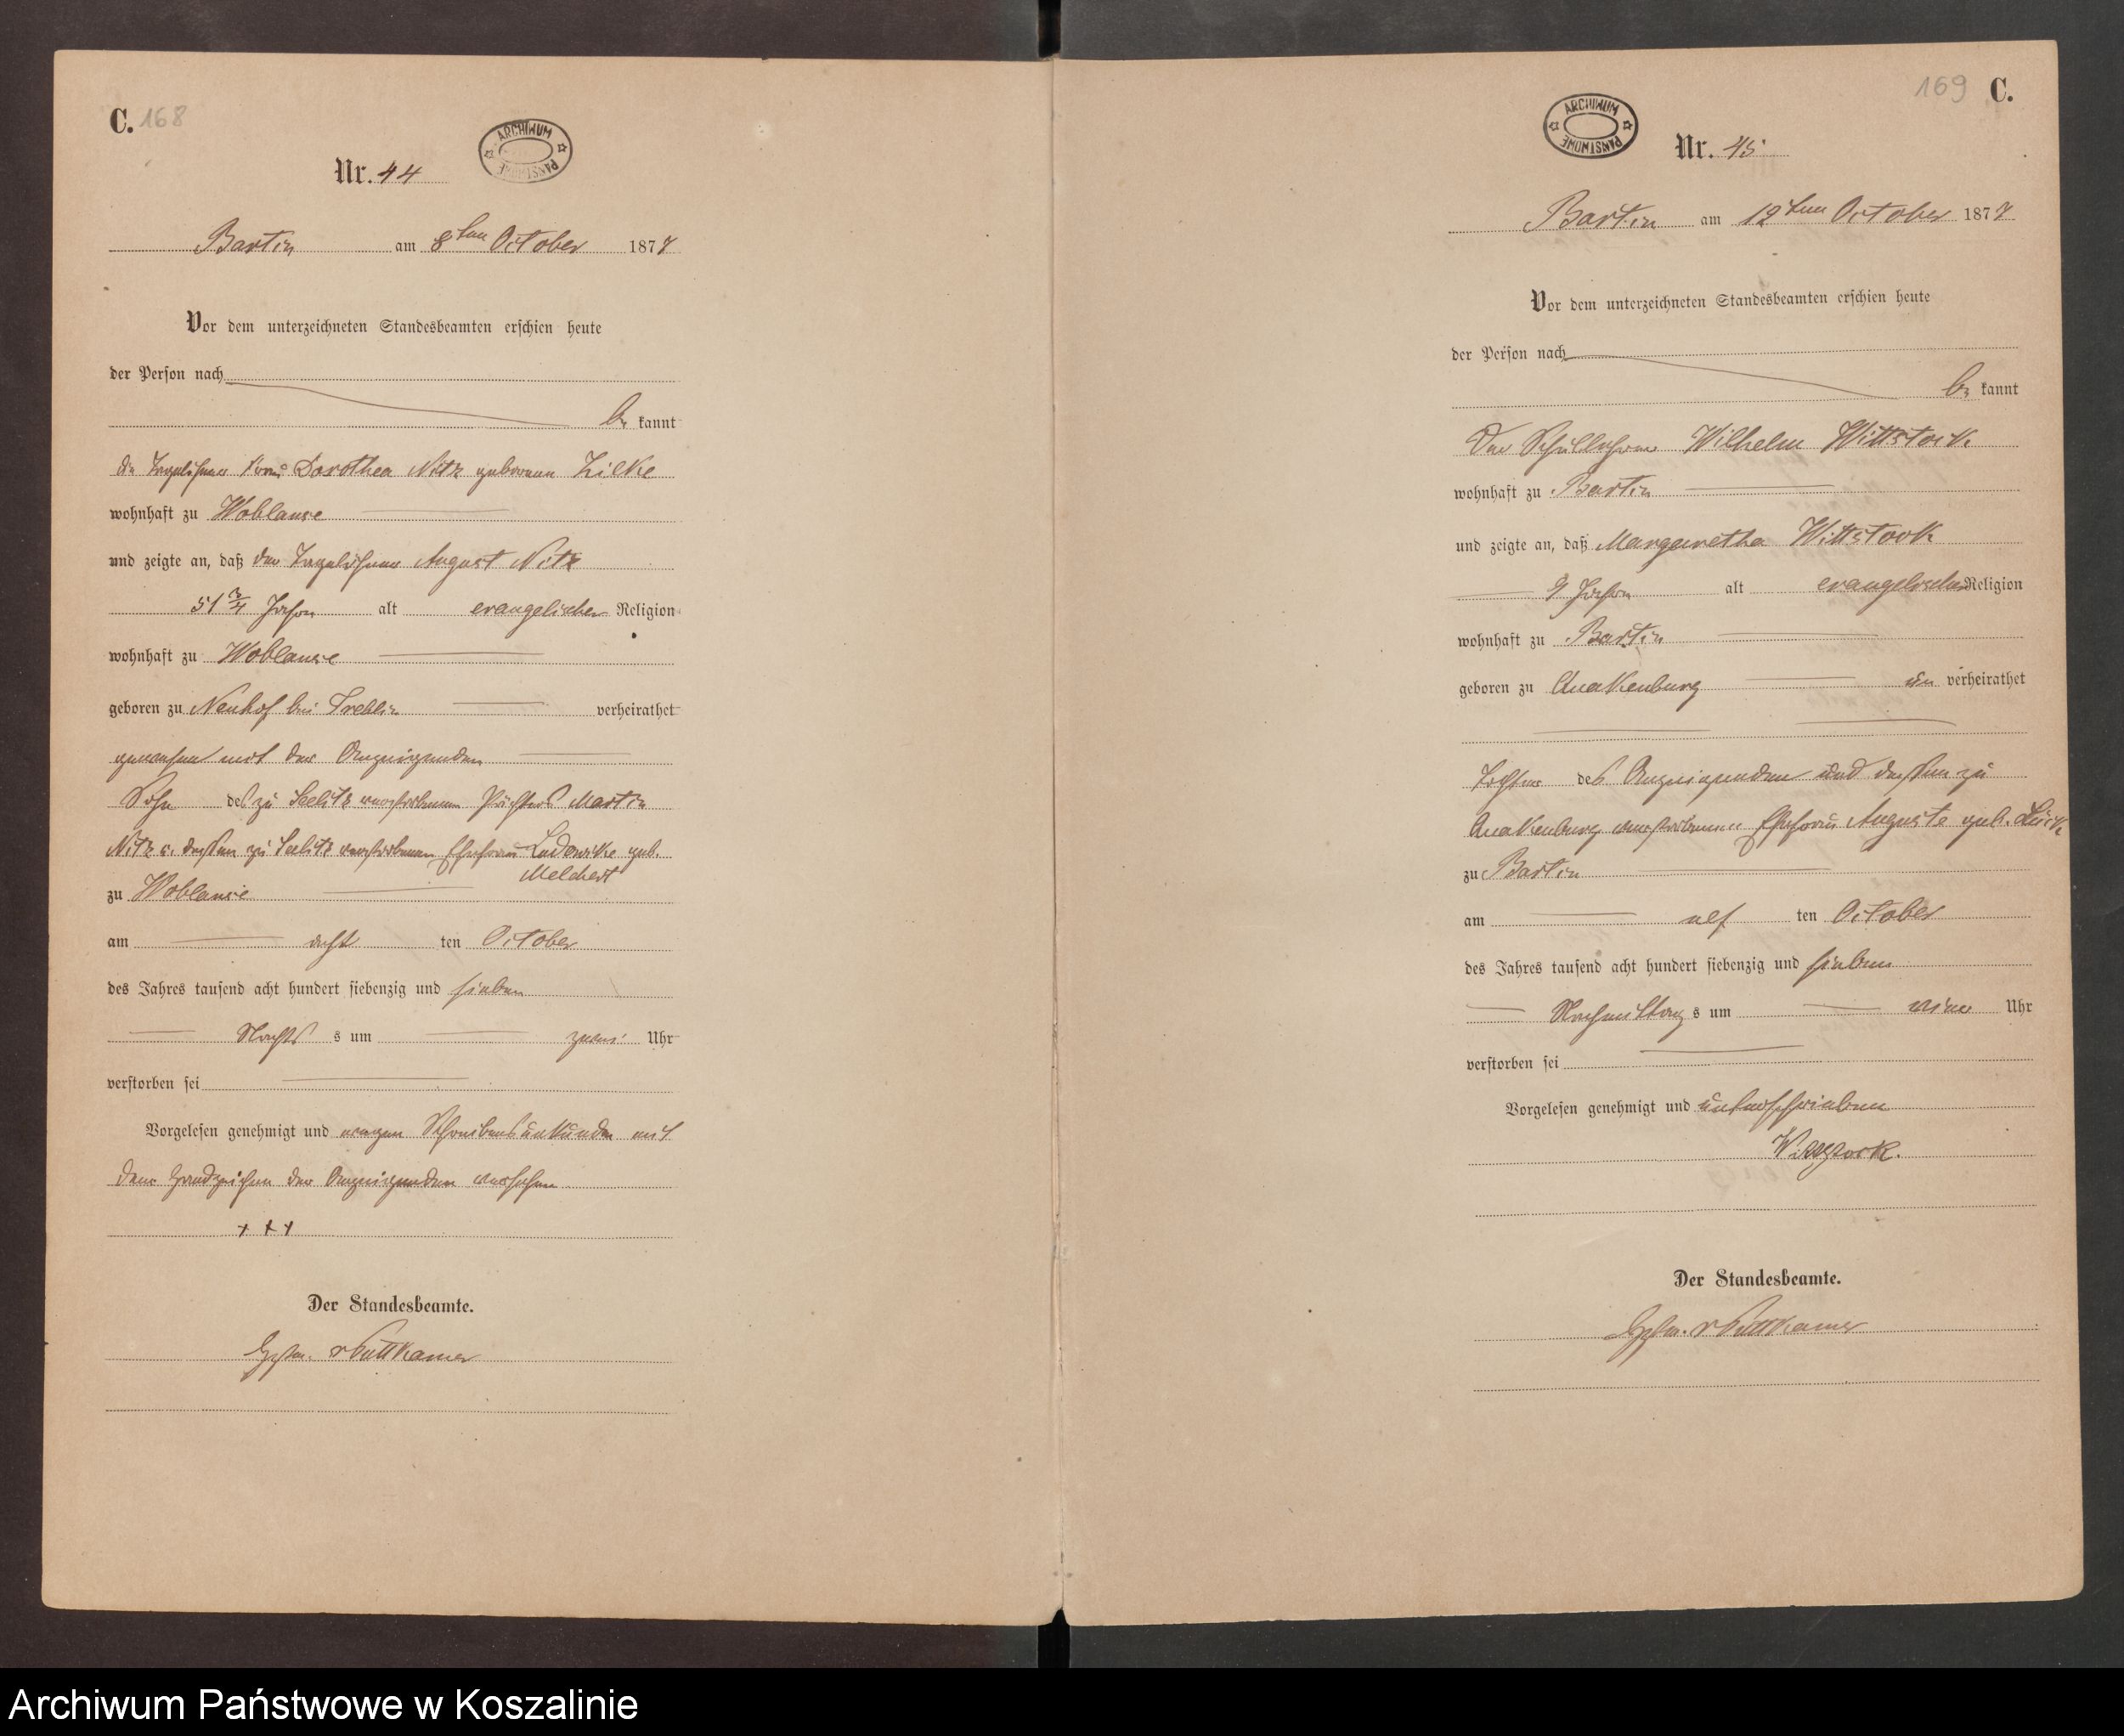 C. 168
ARCHIWUM PAŃSTWOWE
Nr. 44
Bartin am 8ten October 1877
Vor dem unterzeichneten Standesbeamten erschien heute
der Person nach
be kannt
die Tagelöhner Frau Dorothea Nitz geborene Zilke
wohnhaft zu Woblanse
und zeigte an, daß der Tagelöhner August Nitz
51 3/4 Jahre alt evangelischer Religion
wohnhaft zu Woblanse
geboren zu Neuhof bei Treblin verheirathet
gewesen mit der Anzeigenden
Sohn des zu Seelitz verstorbenen Pächters Martin
Nitz u. dessen zu Seelitz verstorbenen Ehefrau Ludowike geb.
Melchert
zu Woblanse
am acht ten October
des Jahres tausend acht hundert siebenzig und sieben
Nachts s um zwei Uhr
verstorben sei
Vorgelesen genehmigt und wegen Schreibensunkunde mit
dem Handzeichen der Anzeigenden versehen
+ + +
Der Standesbeamte.
v Puttkamer
169 C.
ARCHIWUM PAŃSTWOWE
Nr. 45
Bartin am 12ten October 1877
Vor dem unterzeichneten Standesbeamten erschien heute
der Person nach
be kannt
Der Schullehrer Wilhelm Wittstock
wohnhaft zu Bartin
und zeigte an, daß Margaretha Wittstock
9 Jahre alt evangelischer Religion
wohnhaft zu Bartin
geboren zu Quakenburg un verheirathet
Tochter des Anzeigenden und dessen zu
Quakenburg verstorbenen Ehefrau Auguste geb. Lück
zu Bartin
am elf ten October
des Jahres tausend acht hundert siebenzig und sieben
Nachmittag s um eine Uhr
verstorben sei
Vorgelesen genehmigt und unterschrieben
Wittstock.
Der Standesbeamte.
v Puttkamer
Archiwum Państwowe w Koszalinie